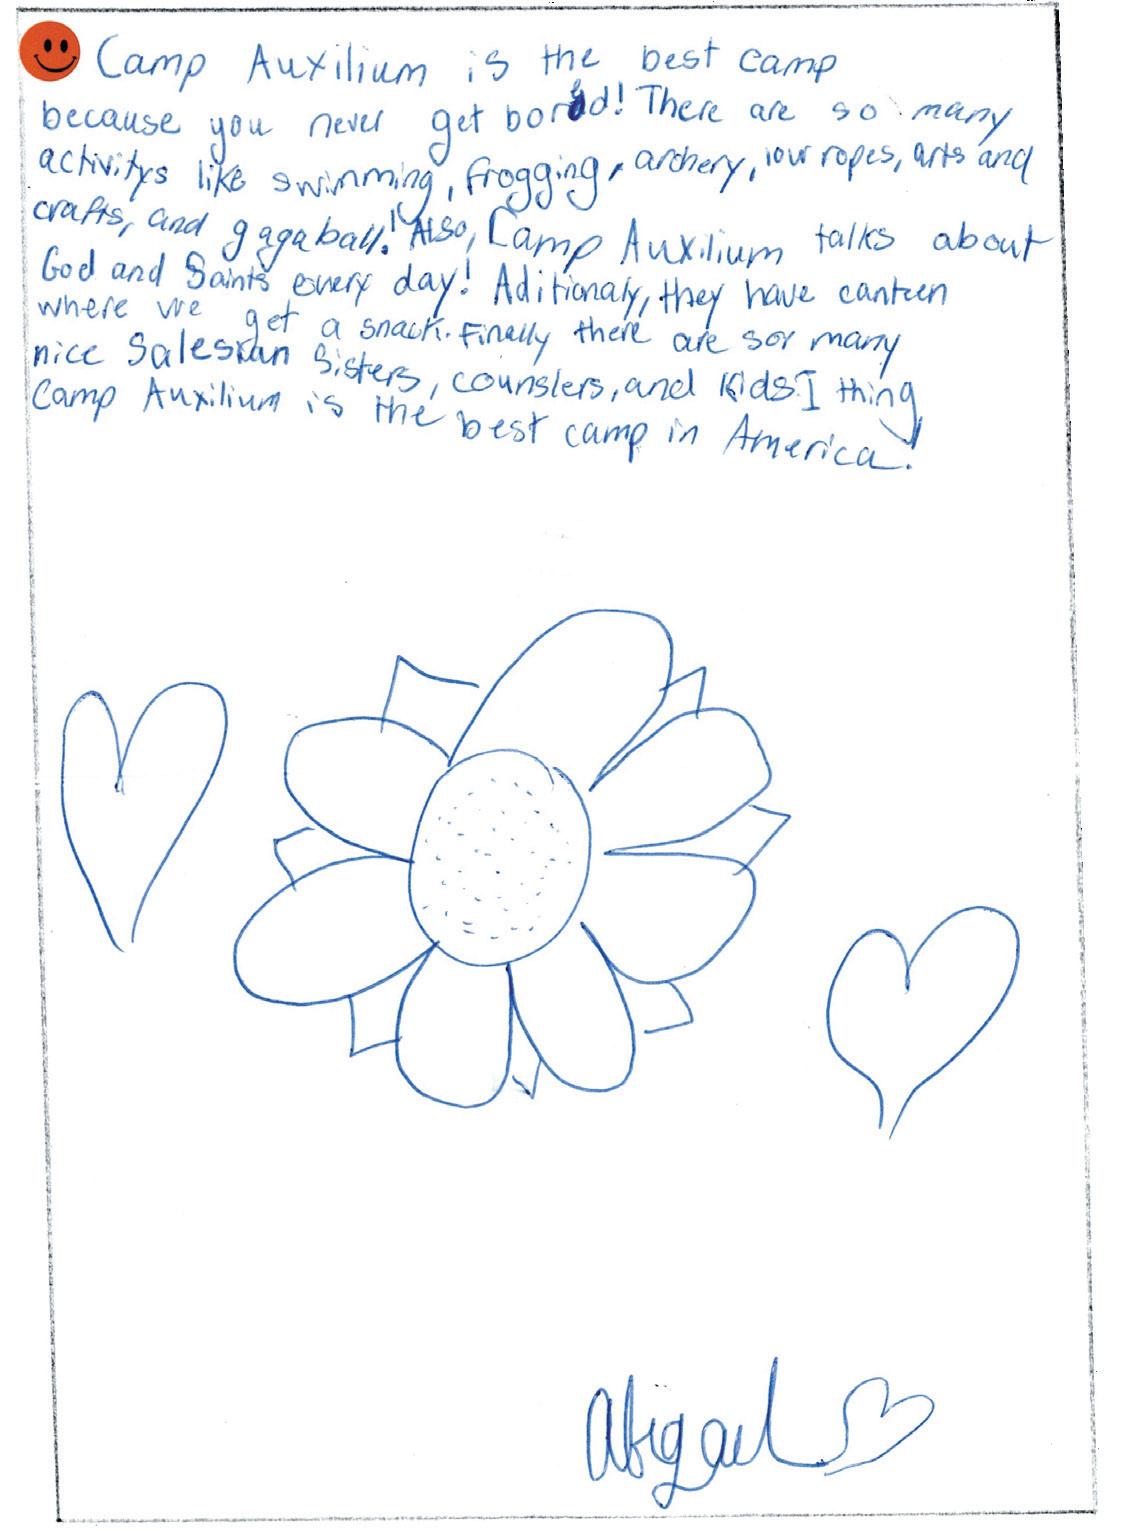 Camp Auxilium is the best camp
because you never get bored! There are so many
activitys like swimming, frogging, archery, low ropes, arts and
crafts, and gagaball! Also, Camp Auxilium talks about
God and Saints every day! Aditionaly, they have canteen
where we get a snack. Finally there are so many
nice Salesian Sisters, counslers, and kids I thing
Camp Auxilium is the best camp in America!
Abigail